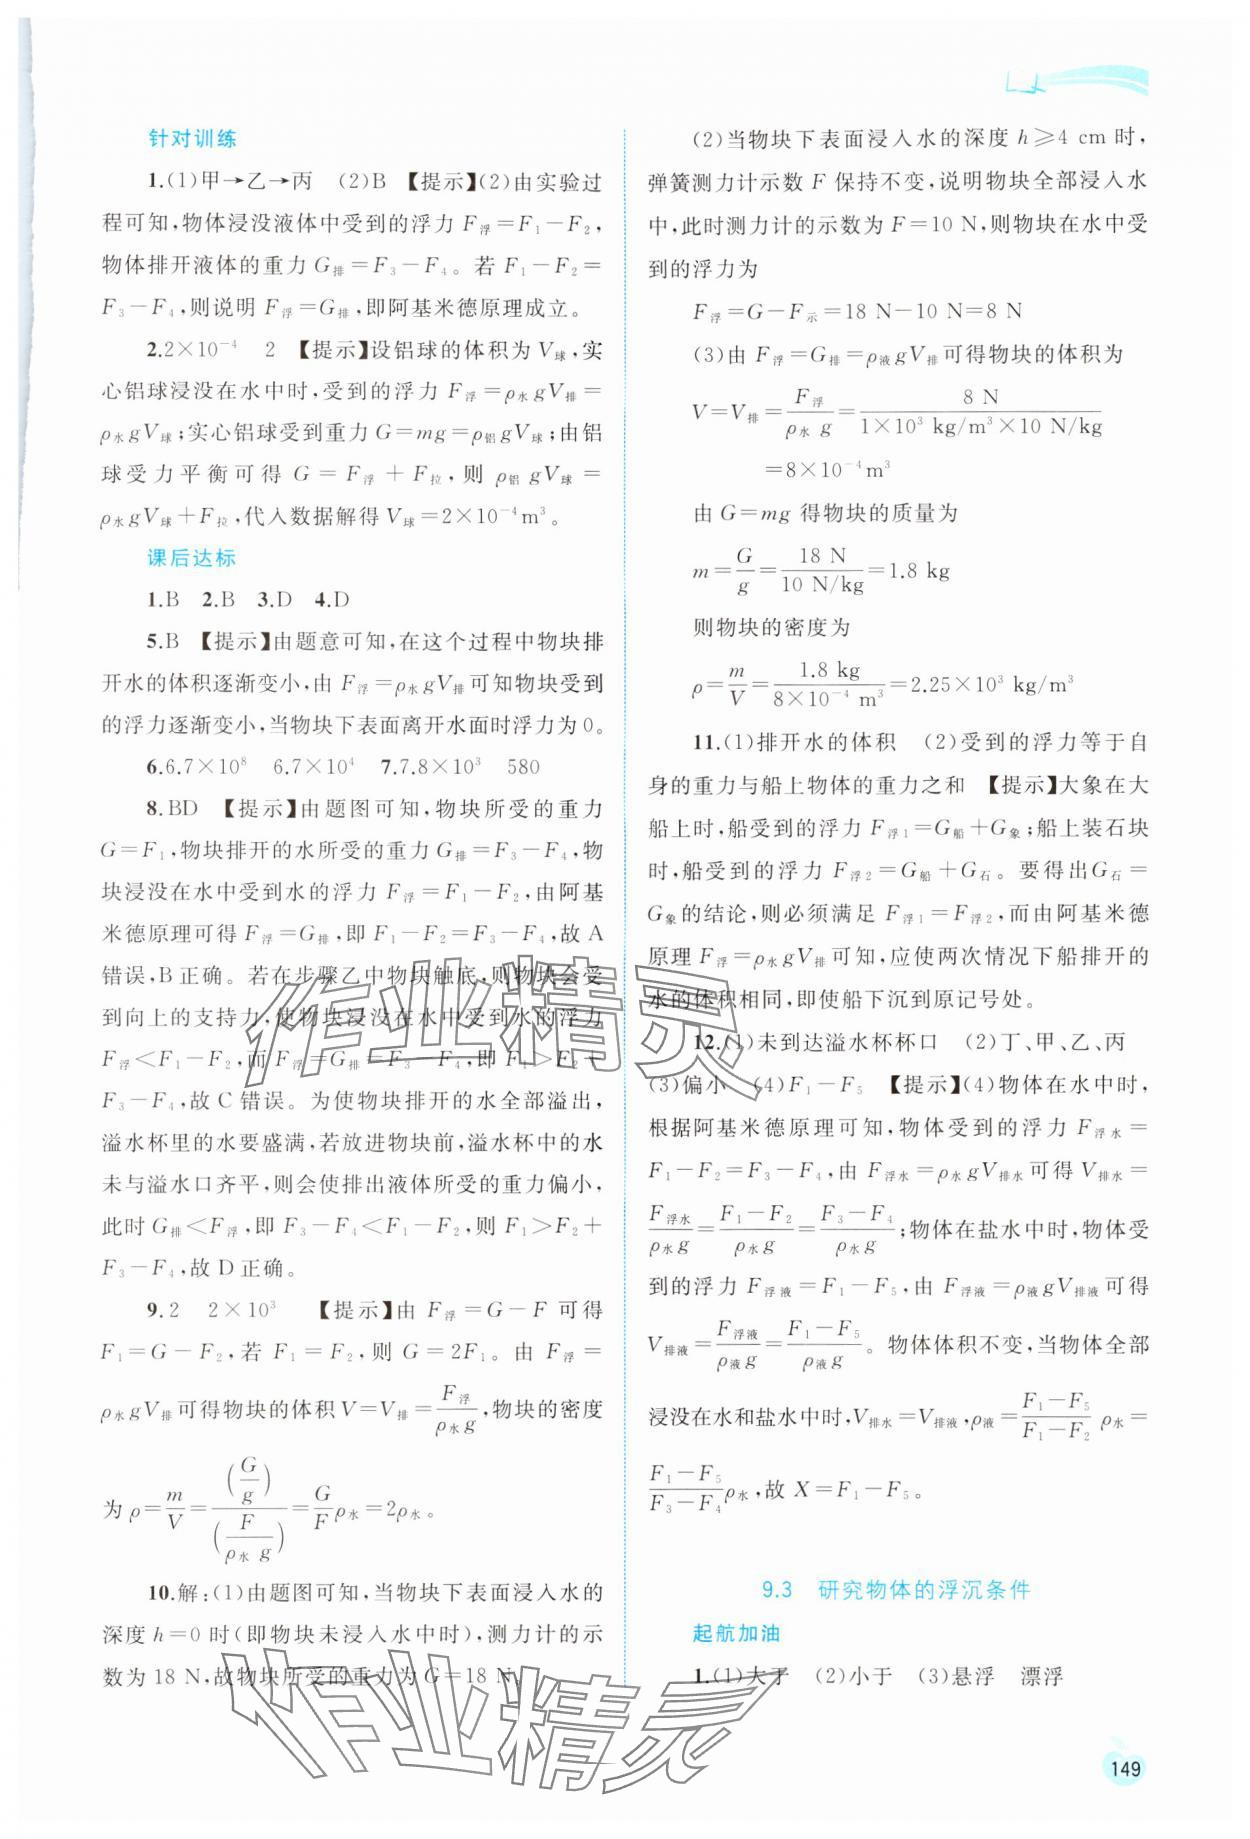 针对训练
1.(1)甲→乙→丙　(2)B　【提示】(2)由实验过
程可知,物体浸没液体中受到的浮力 F浮=F₁-F₂,
物体排开液体的重力 G排=F₃-F₄。若 F₁-F₂=
F₃-F₄,则说明 F浮=G排,即阿基米德原理成立。
2.2×10⁻⁴　2　【提示】设铝球的体积为 V球,实
心铝球浸没在水中时,受到的浮力 F浮=ρ水gV排=
ρ水gV球;实心铝球受到重力 G=mg=ρ铝gV球;由铝
球受力平衡可得 G=F浮+F拉,则 ρ铝gV球=
ρ水gV球+F拉,代入数据解得 V球=2×10⁻⁴m³。
课后达标
1.B　2.B　3.D　4.D
5.B　【提示】由题意可知,在这个过程中物块排
开水的体积逐渐变小,由 F浮=ρ水gV排可知物块受到
的浮力逐渐变小,当物块下表面离开水面时浮力为0。
6.6.7×10⁸　6.7×10⁴　7.7.8×10³　580
8.BD　【提示】由题图可知,物块所受的重力
G=F₁,物块排开的水所受的重力 G排=F₃-F₄,物
块浸没在水中受到水的浮力 F浮=F₁-F₂,由阿基
米德原理可得 F浮=G排,即 F₁-F₂=F₃-F₄,故 A
错误,B正确。若在步骤乙中物块触底,则物块会受
到向上的支持力,使物块浸没在水中受到水的浮力
F浮<F₁-F₂,而 F浮=G排=F₃-F₄,即 F₁>F₂+
F₃-F₄,故 C 错误。为使物块排开的水全部溢出,
溢水杯里的水要盛满,若放进物块前,溢水杯中的水
未与溢水口齐平,则会使排出液体所受的重力偏小,
此时 G排<F浮,即 F₃-F₄<F₁-F₂,则 F₁>F₂+
F₃-F₄,故 D 正确。
9.2　2×10³　【提示】由 F浮=G-F 可得
F₁=G-F₂,若 F₁=F₂,则 G=2F₁。由 F浮=
ρ水gV排可得物块的体积 V=V排=F浮/(ρ水g),物块的密度
为 ρ=m/V=(G/g)/(F/(ρ水g))=(G/F)ρ水=2ρ水。
10.解:(1)由题图可知,当物块下表面浸入水的
深度 h=0 时(即物块未浸入水中时),测力计的示
数为 18 N,故物块所受的重力为 G=18 N。
(2)当物块下表面浸入水的深度 h≥4 cm 时,
弹簧测力计示数 F 保持不变,说明物块全部浸入水
中,此时测力计的示数为 F=10 N,则物块在水中受
到的浮力为
F浮=G-F示=18 N-10 N=8 N
(3)由 F浮=G排=ρ液gV排可得物块的体积为
V=V排=F浮/(ρ水g)=8 N/(1×10³ kg/m³×10 N/kg)
=8×10⁻⁴m³
由 G=mg 得物块的质量为
m=G/g=18 N/(10 N/kg)=1.8 kg
则物块的密度为
ρ=m/V=1.8 kg/(8×10⁻⁴ m³)=2.25×10³ kg/m³
11.(1)排开水的体积　(2)受到的浮力等于自
身的重力与船上物体的重力之和　【提示】大象在大
船上时,船受到的浮力 F浮₁=G船+G象;船上装石块
时,船受到的浮力 F浮₂=G船+G石。要得出G石=
G象的结论,则必须满足 F浮₁=F浮₂,而由阿基米德
原理 F浮=ρ水gV排可知,应使两次情况下船排开的
水的体积相同,即使船下沉到原记号处。
12.(1)未到达溢水杯杯口　(2)丁、甲、乙、丙
(3)偏小　(4)F₁-F₅　【提示】(4)物体在水中时,
根据阿基米德原理可知,物体受到的浮力 F浮水=
F₁-F₂=F₃-F₄,由 F浮水=ρ水gV排水可得 V排水=
F浮水/(ρ水g)=(F₁-F₂)/(ρ水g)=(F₃-F₄)/(ρ水g);物体在盐水中时,物体受
到的浮力 F浮液=F₁-F₅,由 F浮液=ρ液gV排液可得
V排液=F浮液/(ρ液g)=(F₁-F₅)/(ρ液g)。物体体积不变,当物体全部
浸没在水和盐水中时,V排水=V排液,ρ液=(F₁-F₅)/(F₁-F₂) ρ水=
(F₁-F₅)/(F₃-F₄)ρ水,故 X=F₁-F₅。
9.3　研究物体的浮沉条件
起航加油
1.(1)大于　(2)小于　(3)悬浮　漂浮
149
作业精灵
作业精灵